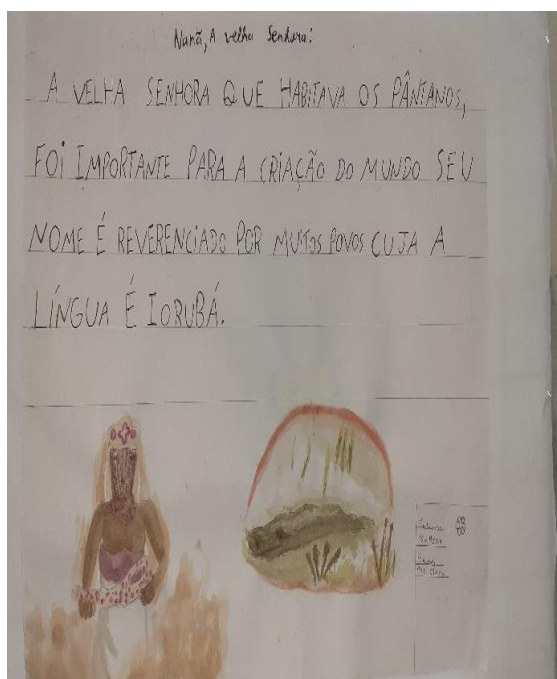 Nanã, A velha Senhora:
A VELHA SENHORA QUE HABITAVA OS PÂNTANOS,
FOI IMPORTANTE PARA A CRIAÇÃO DO MUNDO SEU
NOME É REVERENCIADO POR MUITOS POVOS CUJA A
LÍNGUA É IORUBÁ.